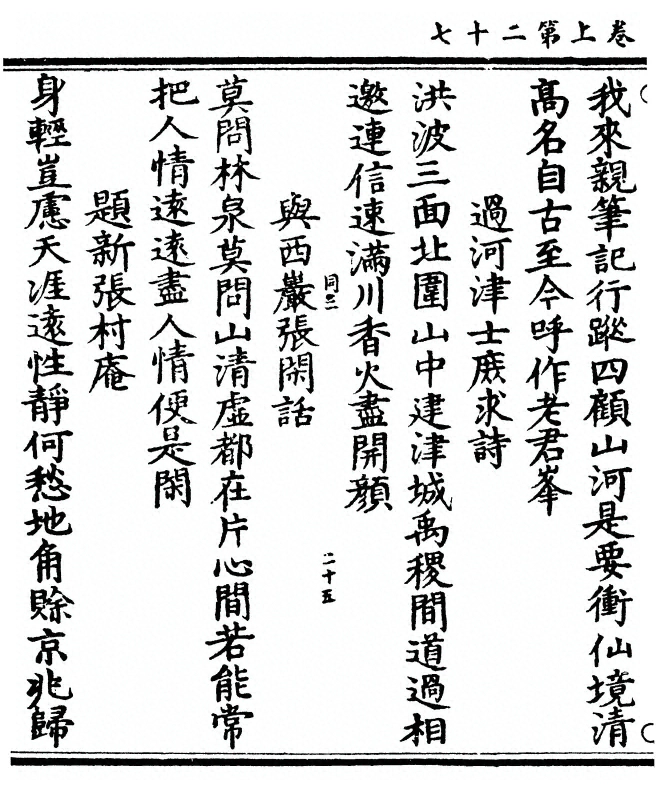 卷上第二十七
我來親筆記行蹤四顧山河是要衝仙境清
高名自古至今呼作老君峯
過河津士庶求詩
洪波三面北圍山中建津城禹稷間道過相
邀連信速滿川香火盡開顔
同上
二十五
與西巖張閑話
莫問林泉莫問山清虛都在片心間若能常
把人情遠遠盡人情便是閑
題新張村庵
身輕豈慮天涯遠性靜何愁地角賒京兆歸